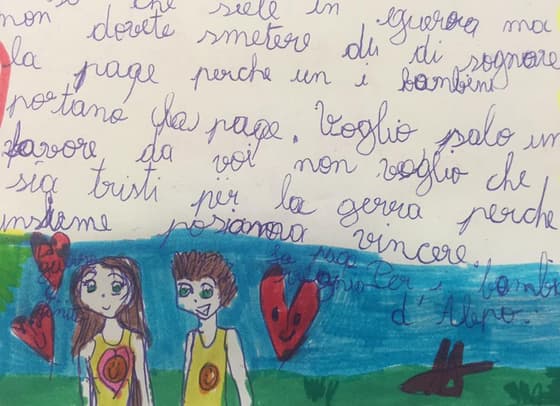 che siete in guerra ma
non dovete smetere di di sognore
la page perche un i bambini
portano la page. Voglio solo un
favore da voi non voglio che
sia tristi per la gerra perche
insieme posiamo vincere.
la pace
Per i bambi
d'Alepo.